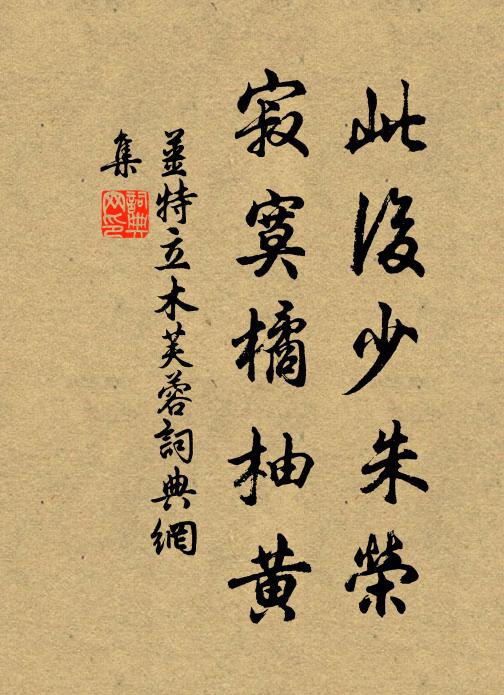 此後少朱榮
寂寞橘柚黃
姜特立木芙蓉詞典網
集
詞典
网印